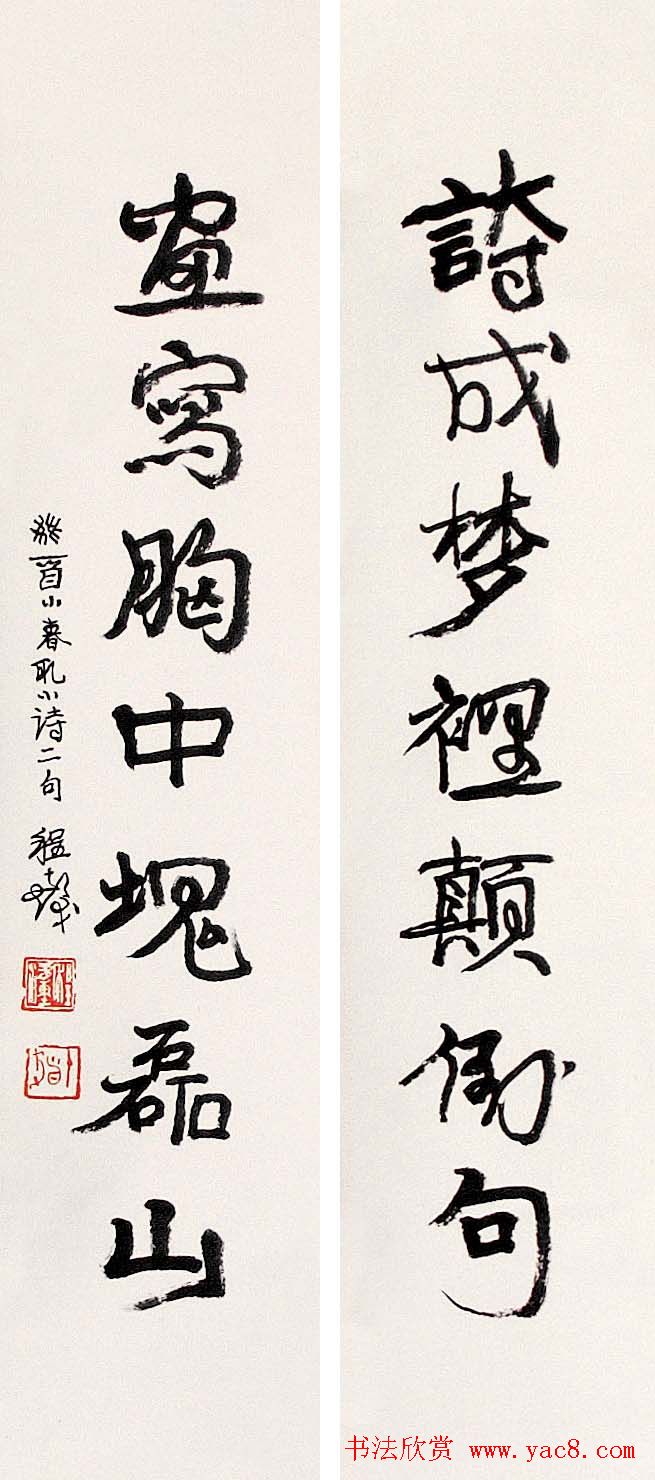 詩成梦裡颠倒句
画寫胸中塊磊山
癸酉小春取小诗二句 程十髮
书法欣赏 www.yac8.com